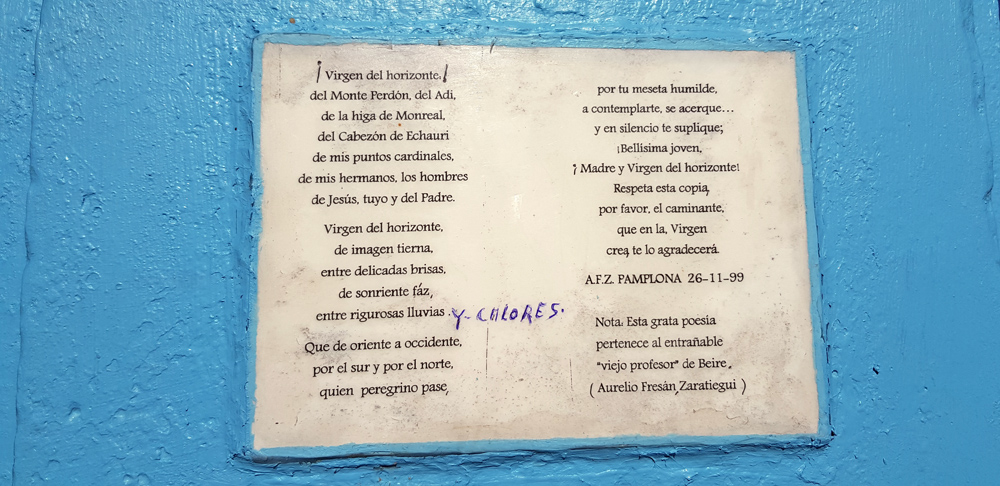 ¡ Virgen del horizonte. !
del Monte Perdón, del Adi,
de la higa de Monreal,
del Cabezón de Echauri
de mis puntos cardinales,
de mis hermanos, los hombres
de Jesús, tuyo y del Padre.
Virgen del horizonte,
de imagen tierna,
entre delicadas brisas,
de sonriente fáz,
entre rigurosas lluvias. Y-CALORES.
Que de oriente a occidente,
por el sur y por el norte,
quien peregrino pase,
por tu meseta humilde,
a contemplarte, se acerque...
y en silencio te suplique;
¡Bellísima joven,
¡ Madre y Virgen del horizonte!
Respeta esta copia,
por favor, el caminante,
que en la, Virgen
crea, te lo agradecerá.
A.F.Z. PAMPLONA 26-11-99
Nota: Esta grata poesía
pertenece al entrañable
"viejo profesor" de Beire.
( Aurelio Fresán, Zaratiegui )